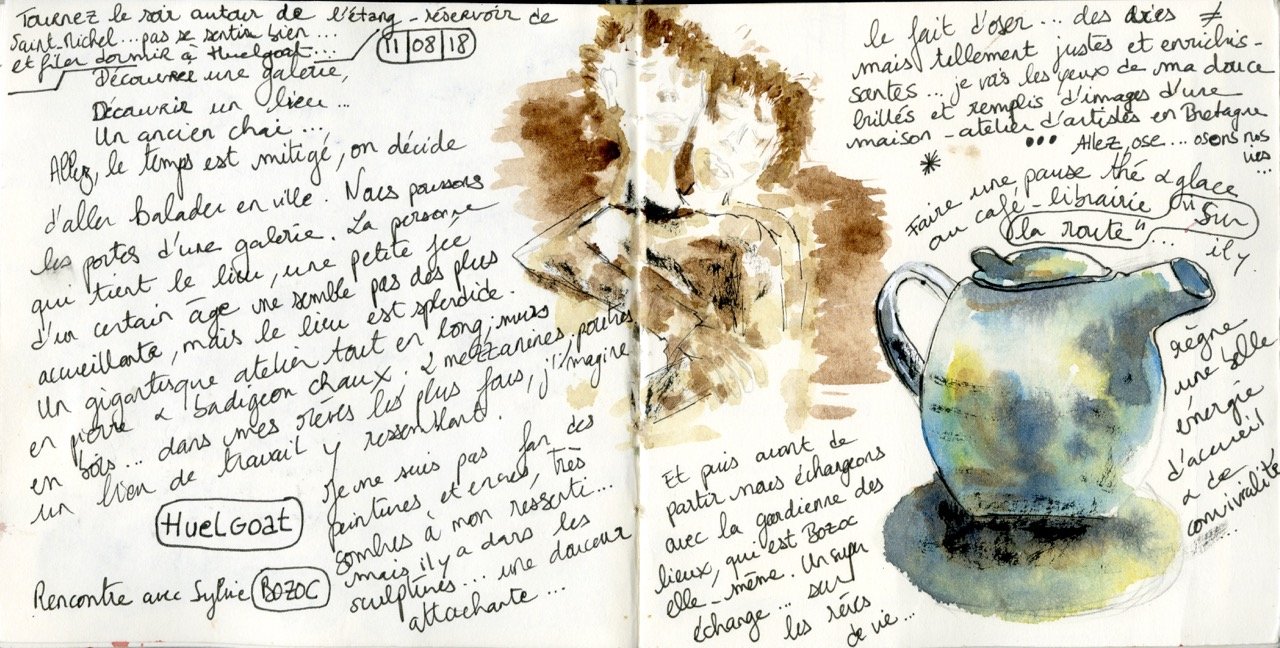 Tournez le soir autour de l'étang-réservoir de
Saint-Michel... pas se sentir bien...
et filer dormir à Huelgoat...
11 | 08 | 18
Découvrir une galerie,
Découvrir un lieu...
Un ancien chai...
Allez, le temps est mitigé, on décide
d'aller balader en ville. Nous poussons
les portes d'une galerie. La personne
qui tient le lieu, une petite fée
d'un certain âge me semble pas des plus
accueillante, mais le lieu est splendide.
Un gigantesque atelier tout en long, murs
en pierre & badigeon chaux. 2 mezzanines, poutres
en bois... dans mes rêves les plus fous, j'imagine
un lieu de travail y ressemblant.
HUELGOAT
Rencontre avec Sylvie BOZOC
Je ne suis pas fan des
peintures, et encres, très
sombres à mon ressenti...
mais il y a dans les
sculptures... une douceur
attachante...
Et puis avant de
partir nous échangeons
avec la gardienne des
lieux, qui est Bozoc
elle-même. Un super
échange... sur
les rêves
de vie...
le fait d'oser... des ≠
mais tellement justes et enrichis-
santes... je vois les yeux de ma douce
brillés et remplis d'images d'une
maison-atelier d'artistes en Bretagne
... Allez, ose... osons nos
vies
...
*
Faire une pause thé & glace
au café-librairie "Sur
la route"...
il y
règne
une belle
énergie
d'accueil
& de
convivialité
...